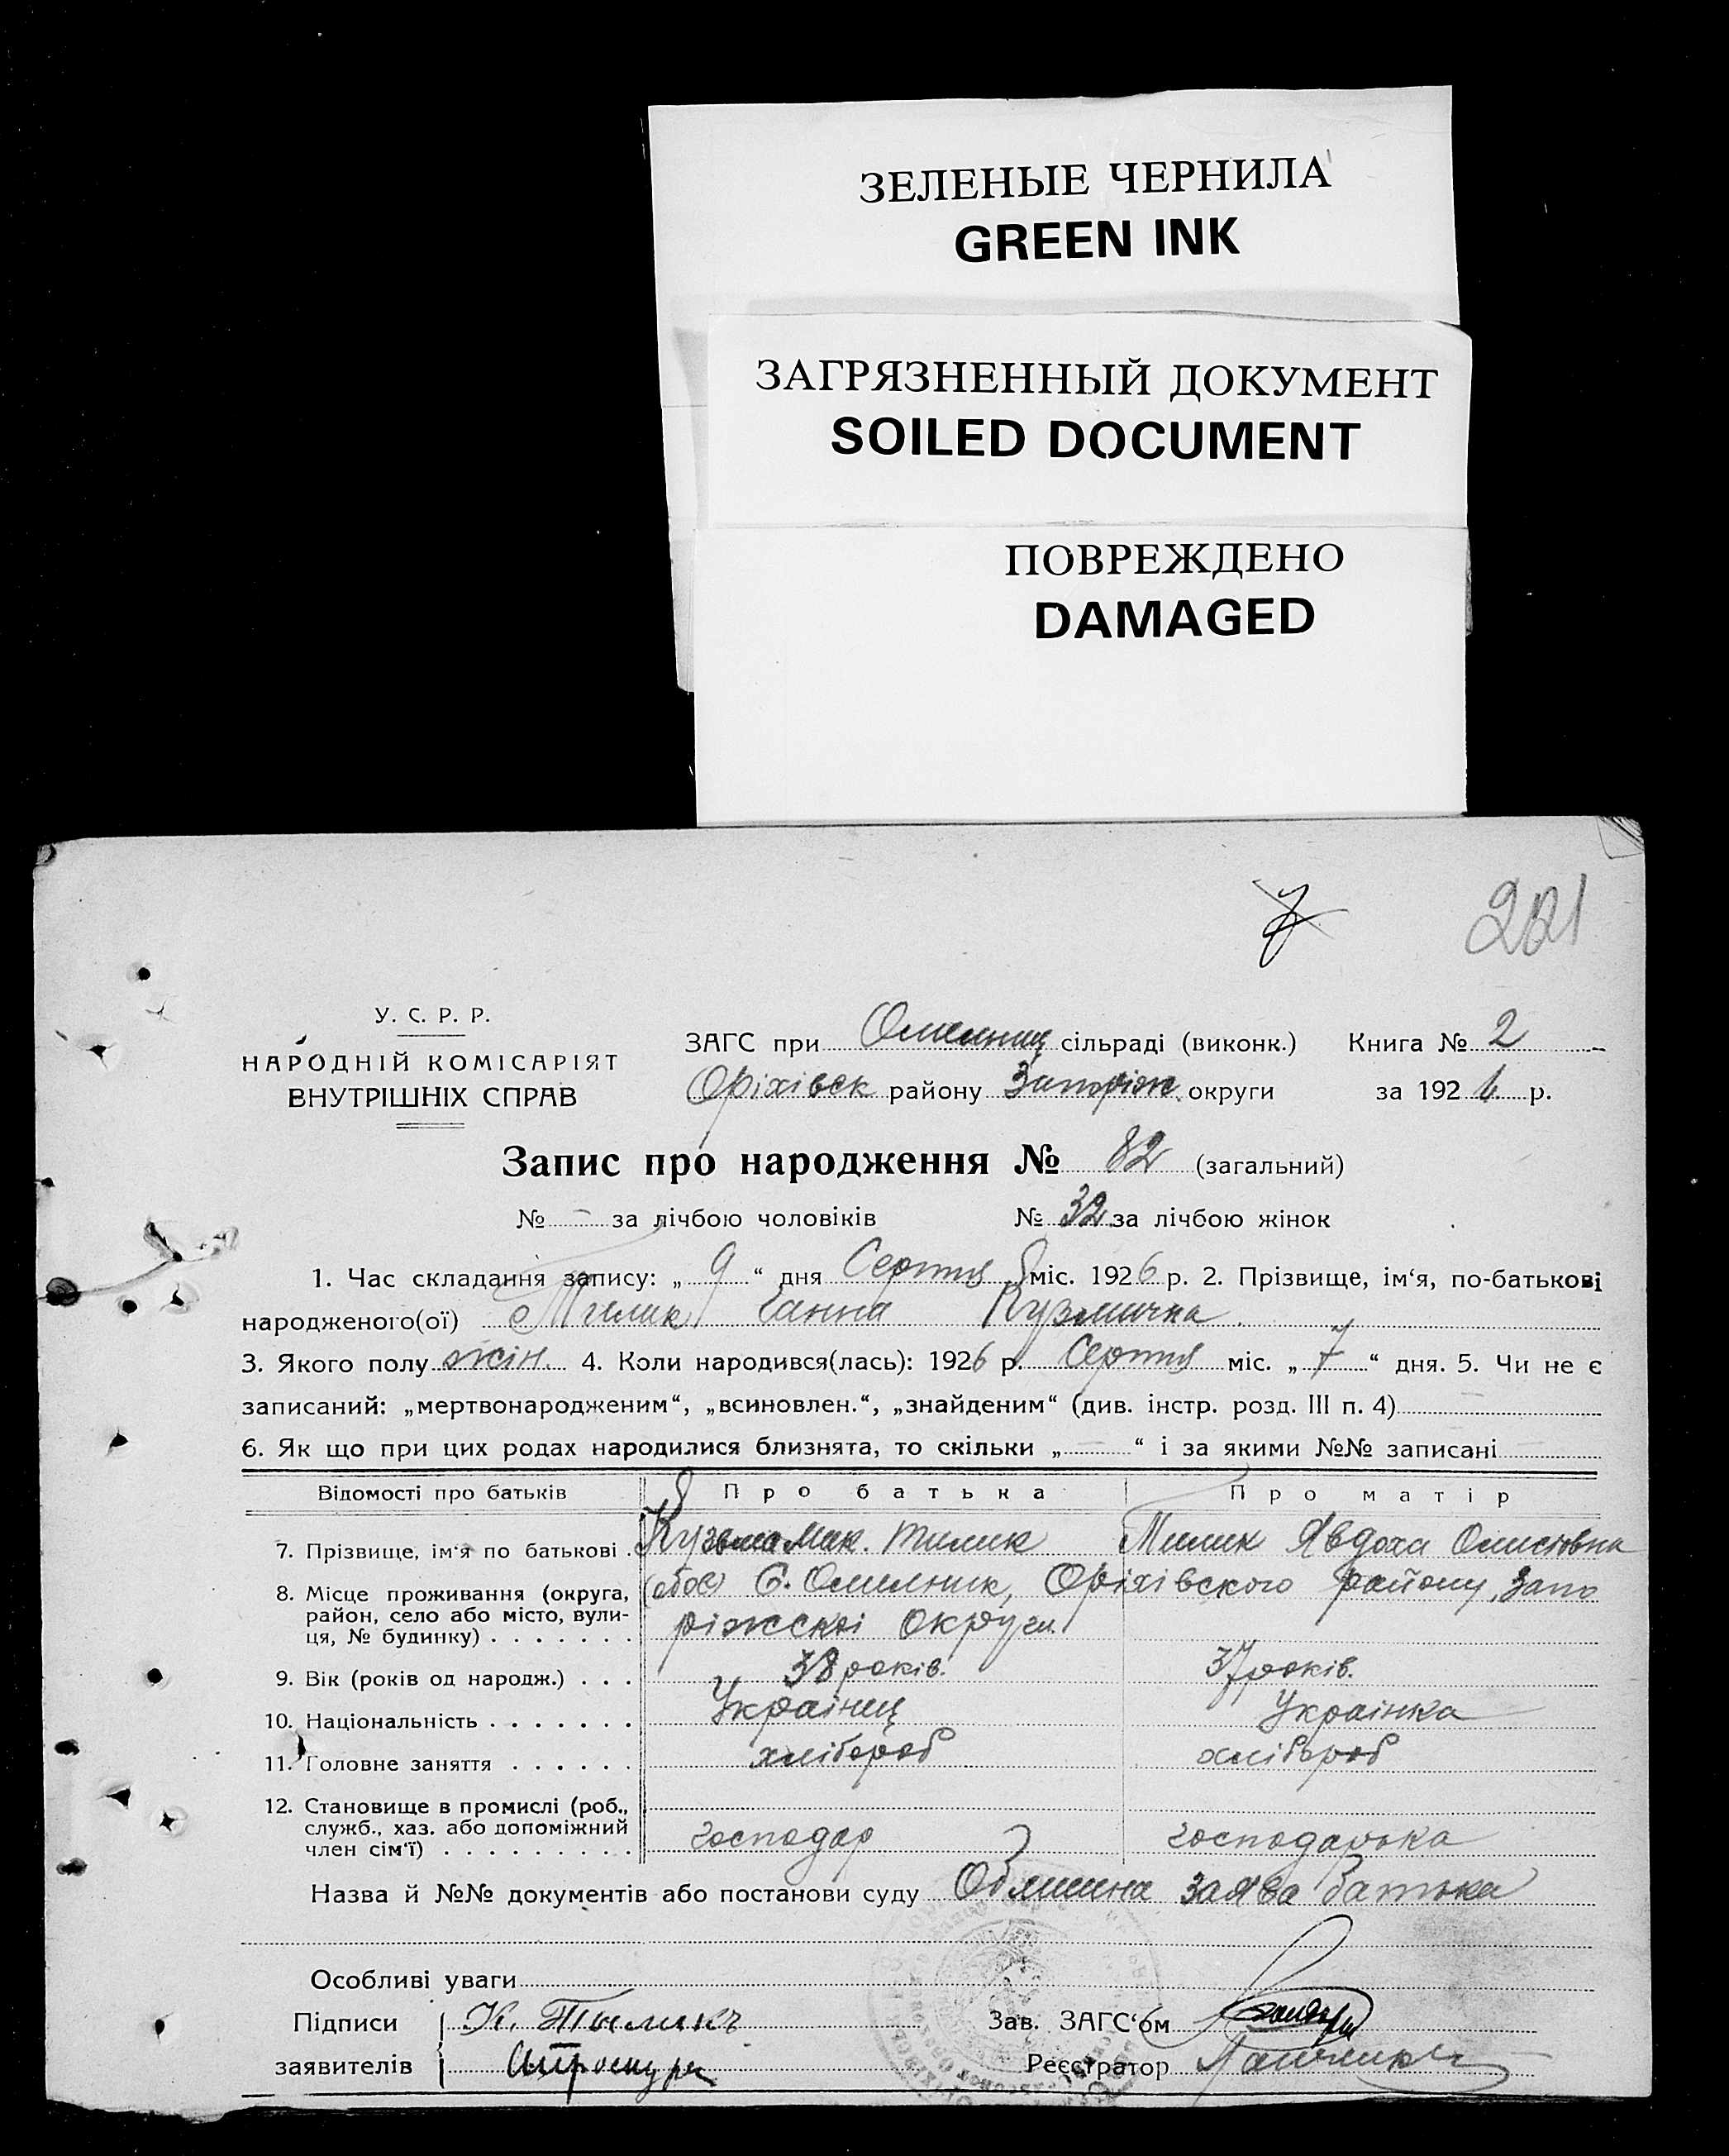 ЗЕЛЕНЫЕ ЧЕРНИЛА
GREEN INK
ЗАГРЯЗНЕННЫЙ ДОКУМЕНТ
SOILED DOCUMENT
ПОВРЕЖДЕНО
DAMAGED
7 201
У. С. Р. Р.
НАРОДНІЙ КОМІСАРІЯТ
ВНУТРІШНІХ СПРАВ
ЗАГС при Омельниц сільраді (виконк.) Книга № 2
Оріхівск району Запоріж. округи за 1926 р.
Запис про народження № 82 (загальний)
№ - за лічбою чоловіків № 32 за лічбою жінок
1. Час складання запису: „ 9 “ дня Серпня міс. 1926 р. 2. Прізвище, ім‘я, по-батькові
народженого(ої) Тилик Ганна Кузмична
3. Якого полу жін. 4. Коли народився(лась): 1926 р. Серпня міс. „ 7 “ дня. 5. Чи не є
записаний: „мертвонародженим“, „всиновлен.“, „знайденим“ (див. інстр. розд. III п. 4)
6. Як що при цих родах народилися близнята, то скільки „ — “ і за якими №№ записані
Відомості про батьків Про батька Про матір
7. Прізвище, ім‘я по батькові Кузьма Мик. Тилик Тилик Явдоха
8. Місце проживання (округа, район, село або місто, вулиця, № будинку) (обоє) С. Омелник, Оріхівского району, Запо
ріжскої Округи
9. Вік (років од народж.) 38 років. 37 років.
10. Національність Украінец Украінка
11. Головне заняття хлібороб хлібороб
12. Становище в промислі (роб., служб., хаз. або допоміжний член сім‘ї) господар господарька
Назва й №№ документів або постанови суду заява батька
Особливі уваги
Підписи К. Тыликъ Зав. ЗАГС‘ом
заявителів Реєстратор